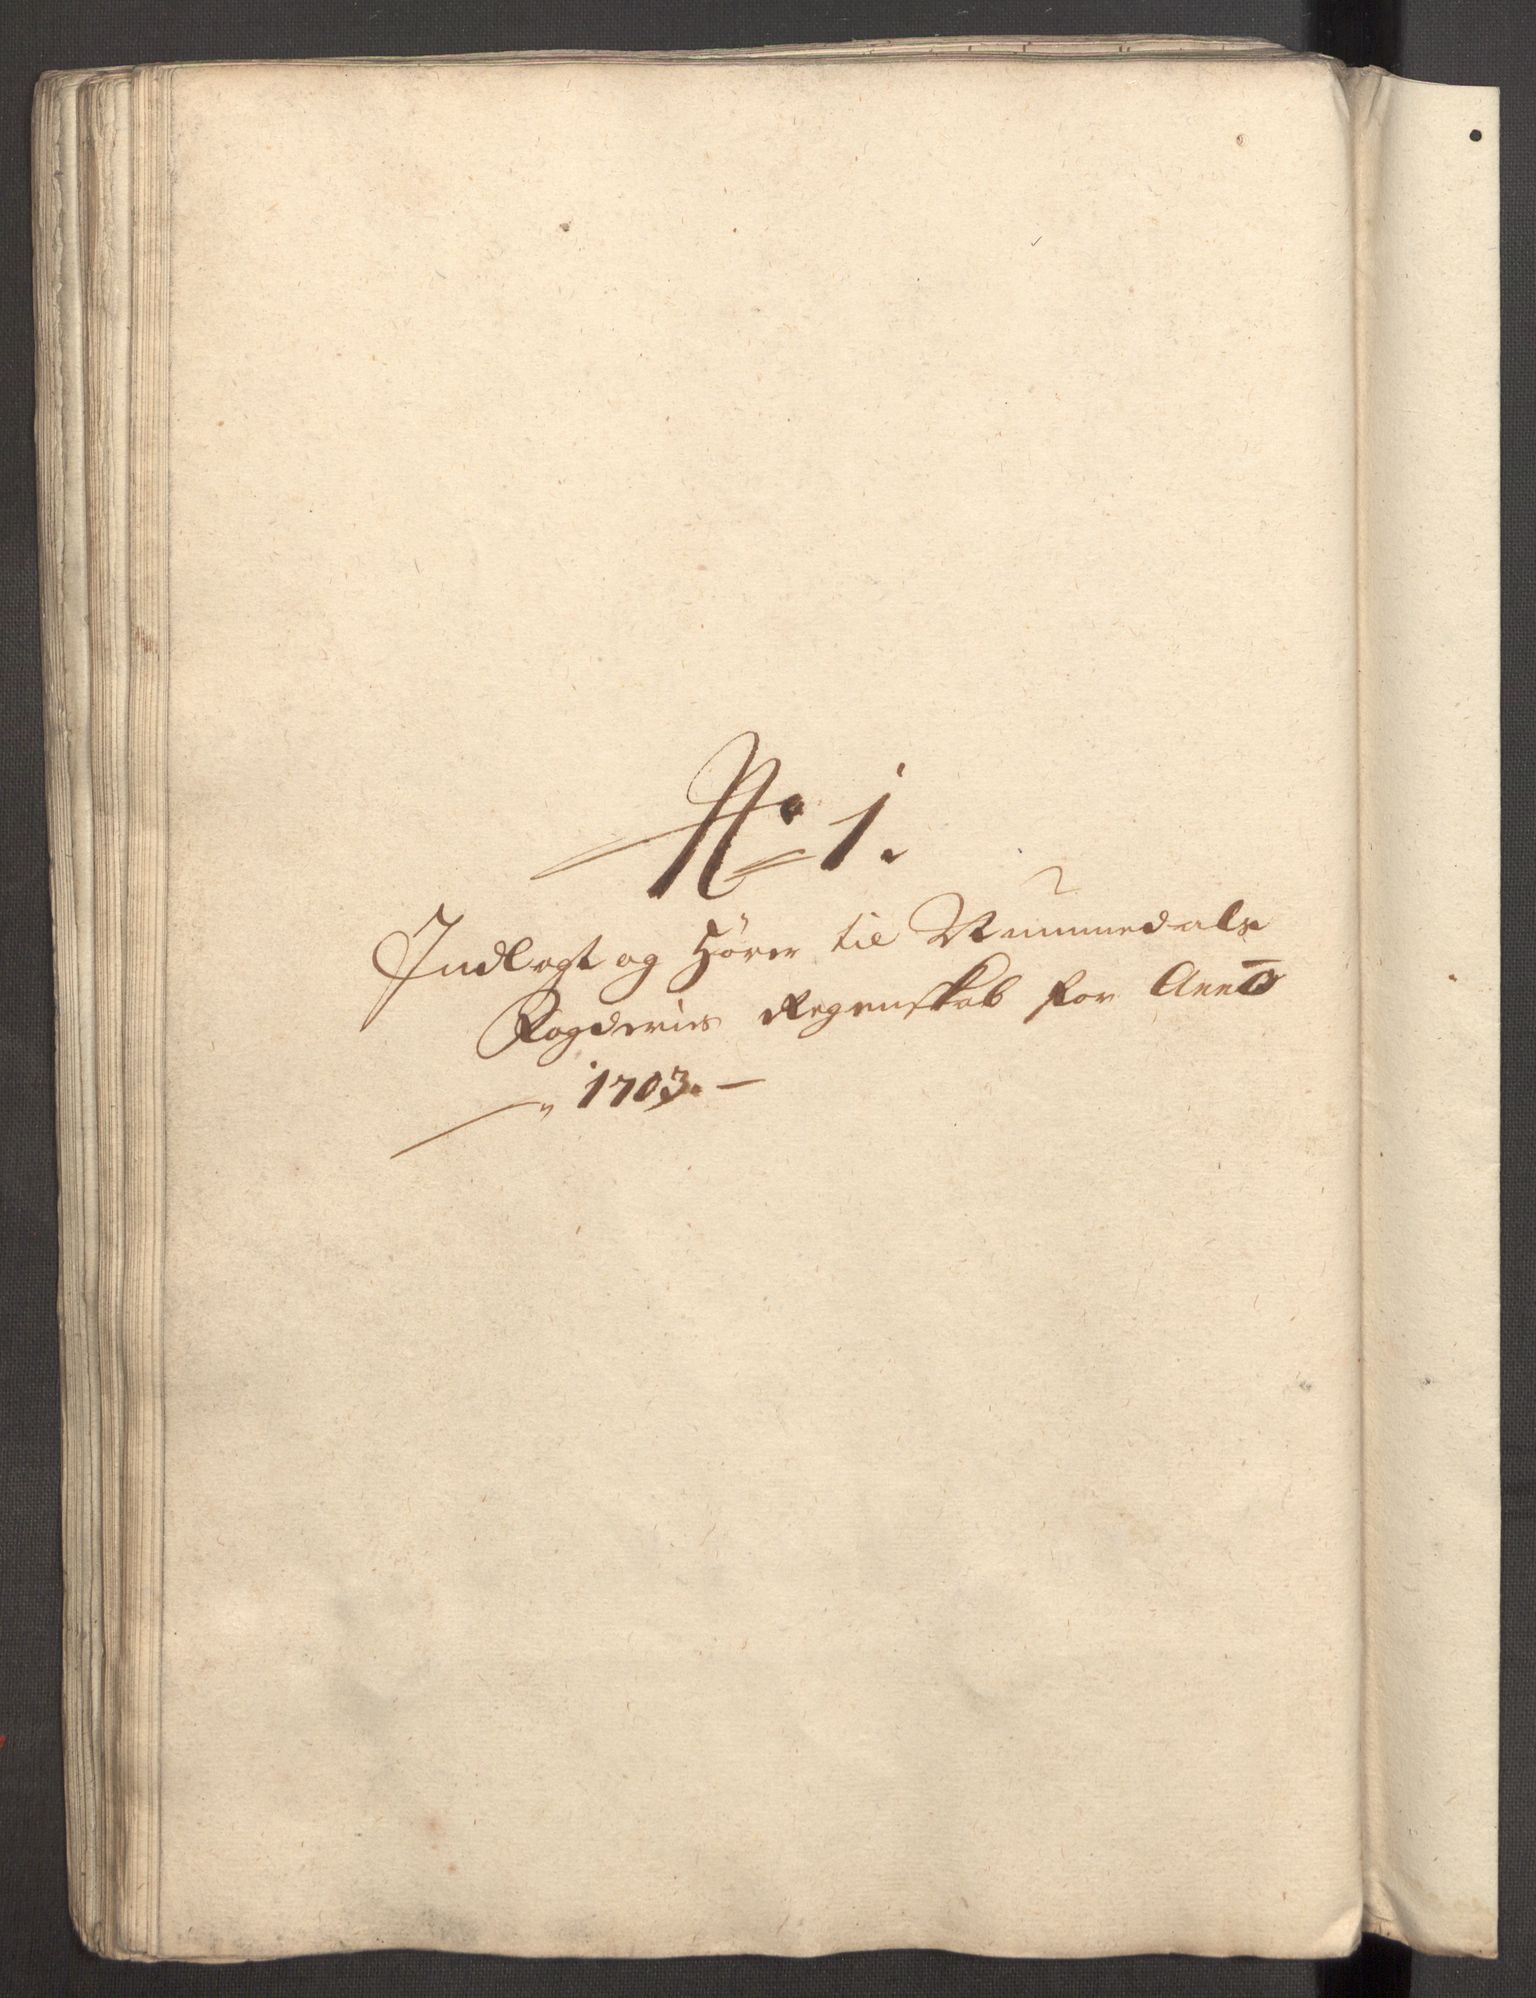 No 1.
Indlagt og Hører til Nummedals
Fogderies Regenskab for Anno
1703.